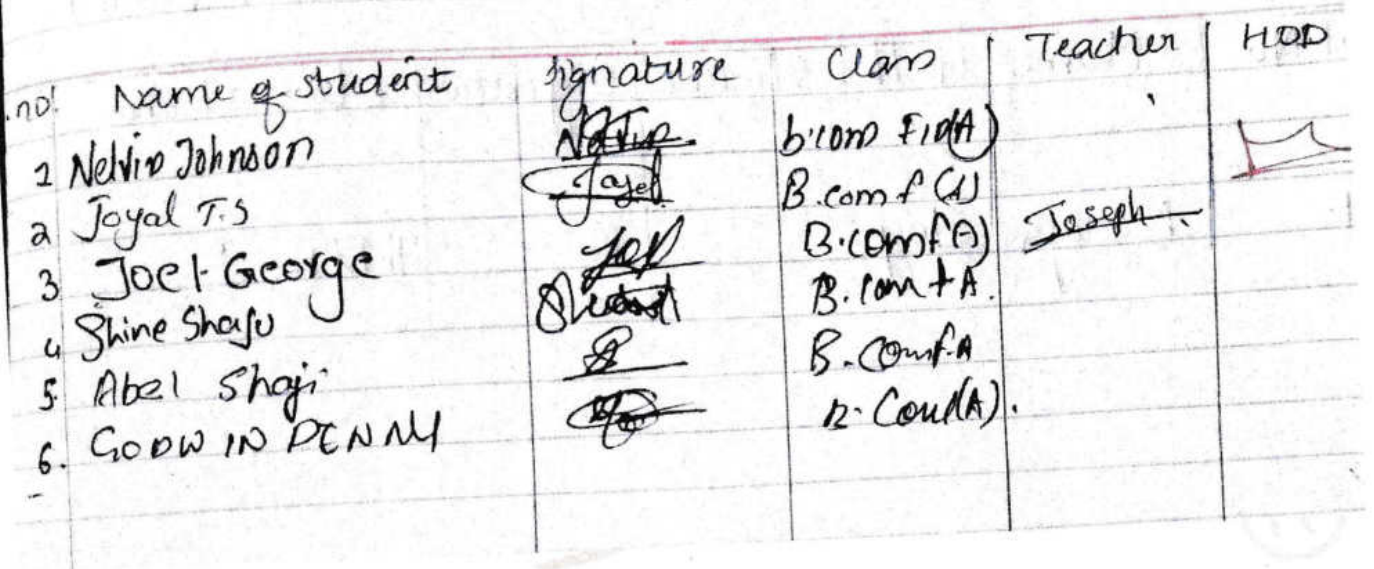 .no! Name of student Signature Class Teacher HOD
1 Nelvin Johnson Nelvin b.com Fin(A)
2 Joyal T.S Joyel B.com f (A)
3 Joel George Joel B.comf A) Joseph
4 Shine Shaju B.com f A.
5. Abel Shaji B.Comf.A
6. GODWIN DENNY B. (A).